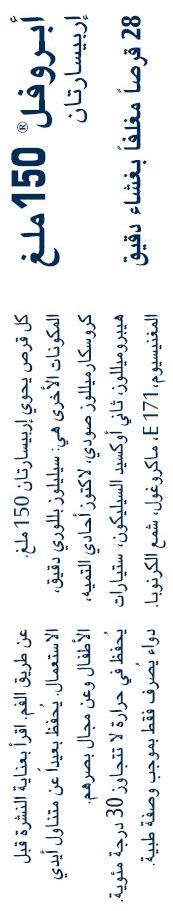 أبـروفـل® 150 ملـغ
إربيسـارتـان
28 قرصاً مغلفاً بغشاء دقيق
كل قرص يحوي إربيسارتان 150 ملغ.
المكونات الأخرى هي: سيليلور بللوري دقيق،
كروسكارميللوز صودي، لاكتوز أحادي التميه،
هيبروميللوز، ثاني أوكسيد السيليكون، ستيارات
المغنيسيوم، E 171، ماكروغول، شمع الكرنوبا.
عن طريق الفم. اقرأ بعناية النشرة قبل
الاستعمال. يُحفظ بعيداً عن متناول أيدي
الأطفال وعن مجال بصرهم.
يُحفظ في حرارة لا تتجاوز 30 درجة مئوية.
دواء يُصرف فقط بموجب وصفة طبية.